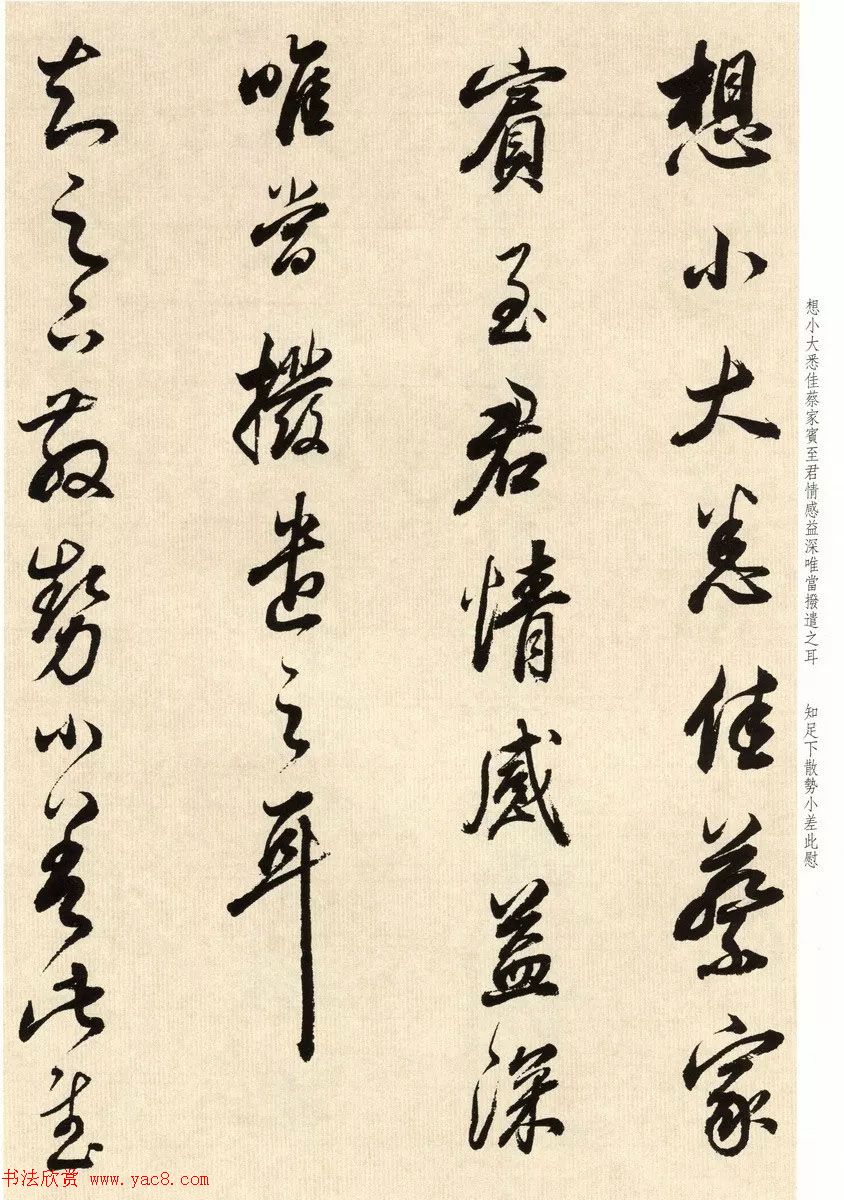 想小大悉佳蔡家
賓至君情感益深
唯當撥遣之耳
知足下散勢小差此慰
想小大悉佳蔡家賓至君情感益深唯當撥遣之耳　知足下散勢小差此慰
书法欣赏 www.yac8.com